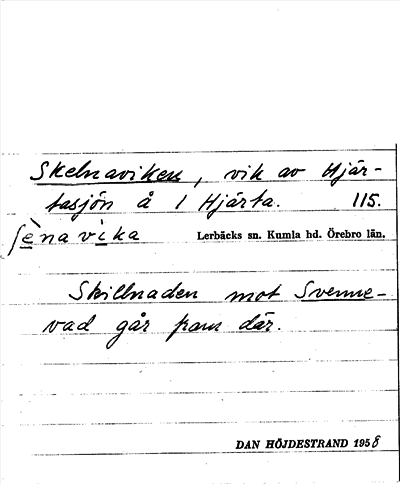 Skelnaviken, vik av Hjär-
tasjön å 1 Hjärta. 115.
ʃènavìka Lerbäcks sn. Kumla hd. Örebro län.
Skillnaden mot Svenne-
vad går fram där.
DAN HÖJDESTRAND 1958